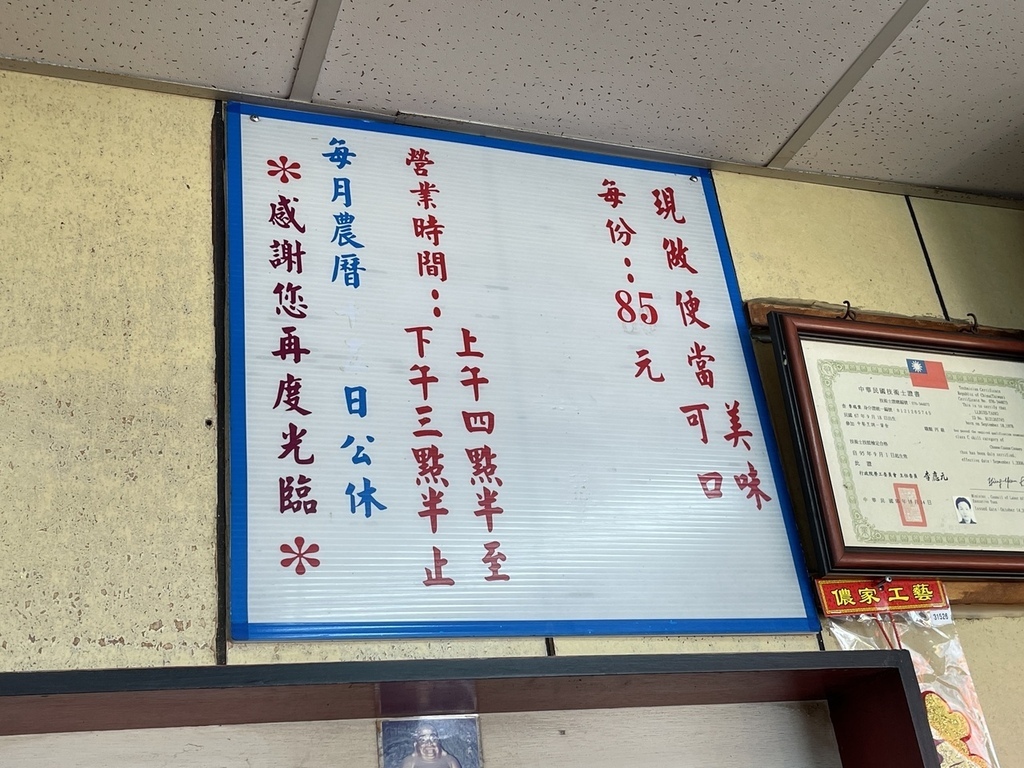 現做便當可口
美味
每份：85元
營業時間：
上午四點半至
下午三點半止
每月農曆
日公休
＊感謝您再度光臨＊
中華民國技術士證書
Republic of China(Taiwan)
中華民國
儂家工藝
31526